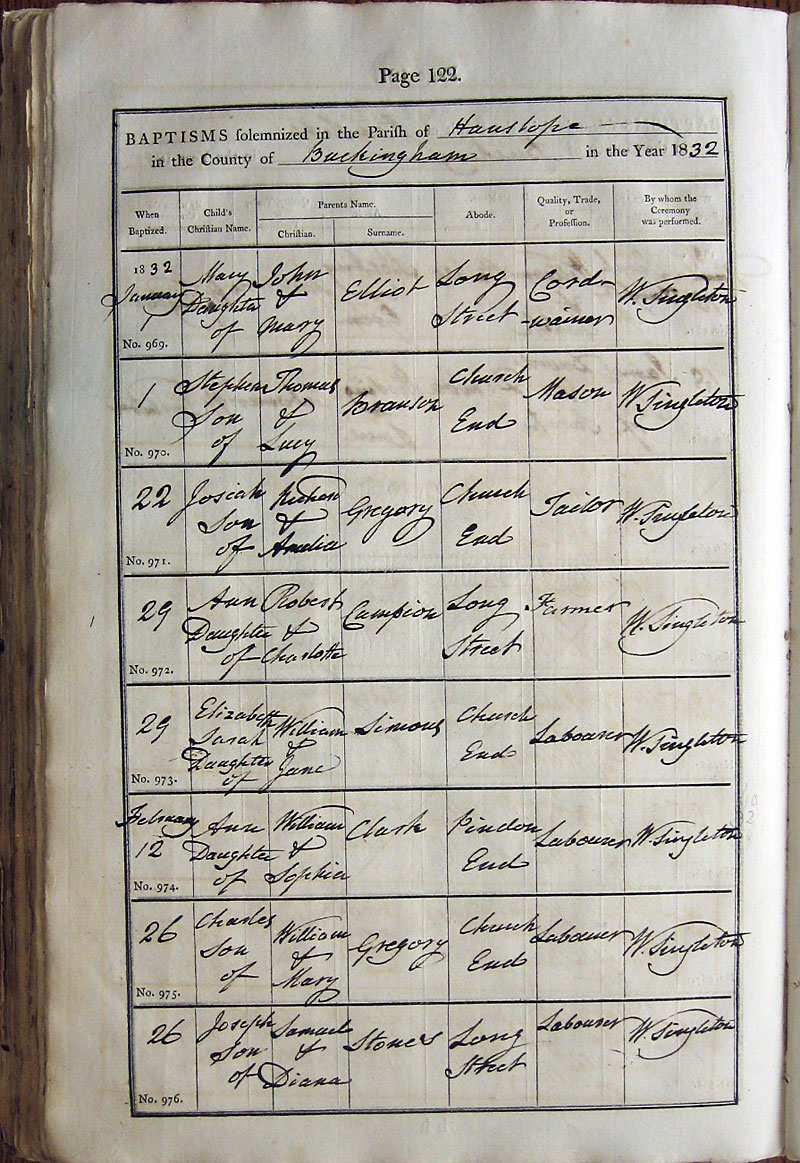 Page 122.
BAPTISMS solemnized in the Parish of Hanslope
in the County of Buckingham in the Year 1832
When Baptized.
Child's Christian Name.
Parents Name.
Christian.
Surname.
Abode.
Quality, Trade, or Profession.
By whom the Ceremony was performed.
1832 Mary John Elliot Long Cord- W. Singleton
January Daughter & Street -wainer
1 of Mary
No. 969.
1 Stephen Thomas Branson Church Mason W Singleton
Son & End
of Lucy
No. 970.
22 Josiah Richard Gregory Church Tailor W. Singleton
Son & End
of Amelia
No. 971.
29 Ann Robert Campion Long Farmer W. Singleton
Daughter & Street
of Charlotte
No. 972.
29 Elizabeth William Simons Church Labourer W. Singleton
Sarah & End
Daughter Jane
of
No. 973.
February Ann William Clark Pindon Labourer W. Singleton
12 Daughter & End
of Sophia
No. 974.
26 Charles William Gregory Church Labourer W. Singleton
Son & End
of Mary
No. 975.
26 Joseph Samuel Stones Long Labourer W. Singleton
Son & Street
of Diana
No. 976.